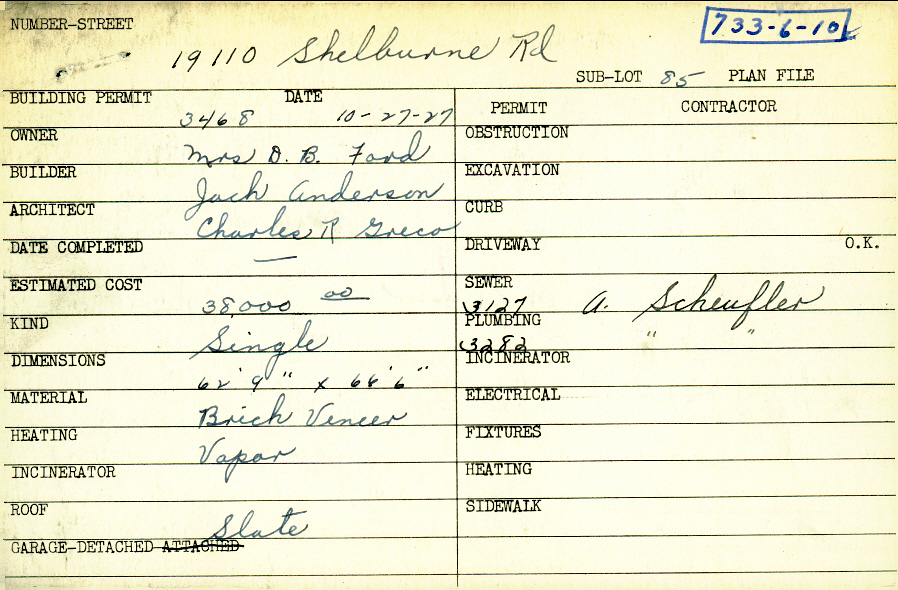 NUMBER-STREET
733-6-10
19110 Shelburne Rd
SUB-LOT 85 PLAN FILE
BUILDING PERMIT 3468 DATE 10-27-27
PERMIT CONTRACTOR
OWNER Mrs D. B. Ford
OBSTRUCTION
BUILDER Jack Anderson
EXCAVATION
ARCHITECT Charles R Greco
CURB
DATE COMPLETED —
DRIVEWAY O.K.
ESTIMATED COST 38,000 00
SEWER 3127 A. Scheufler
KIND Single
PLUMBING 3282 " "
DIMENSIONS 62' 9" x 66' 6"
INCINERATOR
MATERIAL Brick Veneer
ELECTRICAL
HEATING Vapor
FIXTURES
INCINERATOR
HEATING
ROOF Slate
SIDEWALK
GARAGE-DETACHED ATTACHED